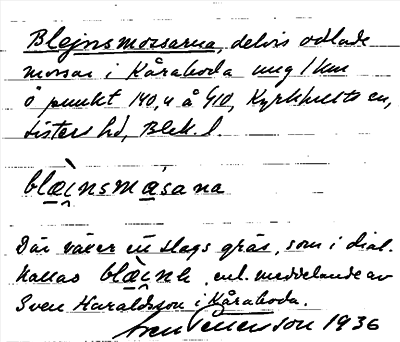 Blejnsmossarna, delvis odlade
mossar i Kåraboda ung 1 km
ö punkt 140,4 å G10, Kyrkhults sn,
Listers hd, Blek. l.
blæ̀i̯nsmåsana
Där växer ett slags gräs, som i dial.
kallas blæ̀i̯ne enl. meddelande av
Sven Haraldsson i Kåraboda.
Sven Benson 1936